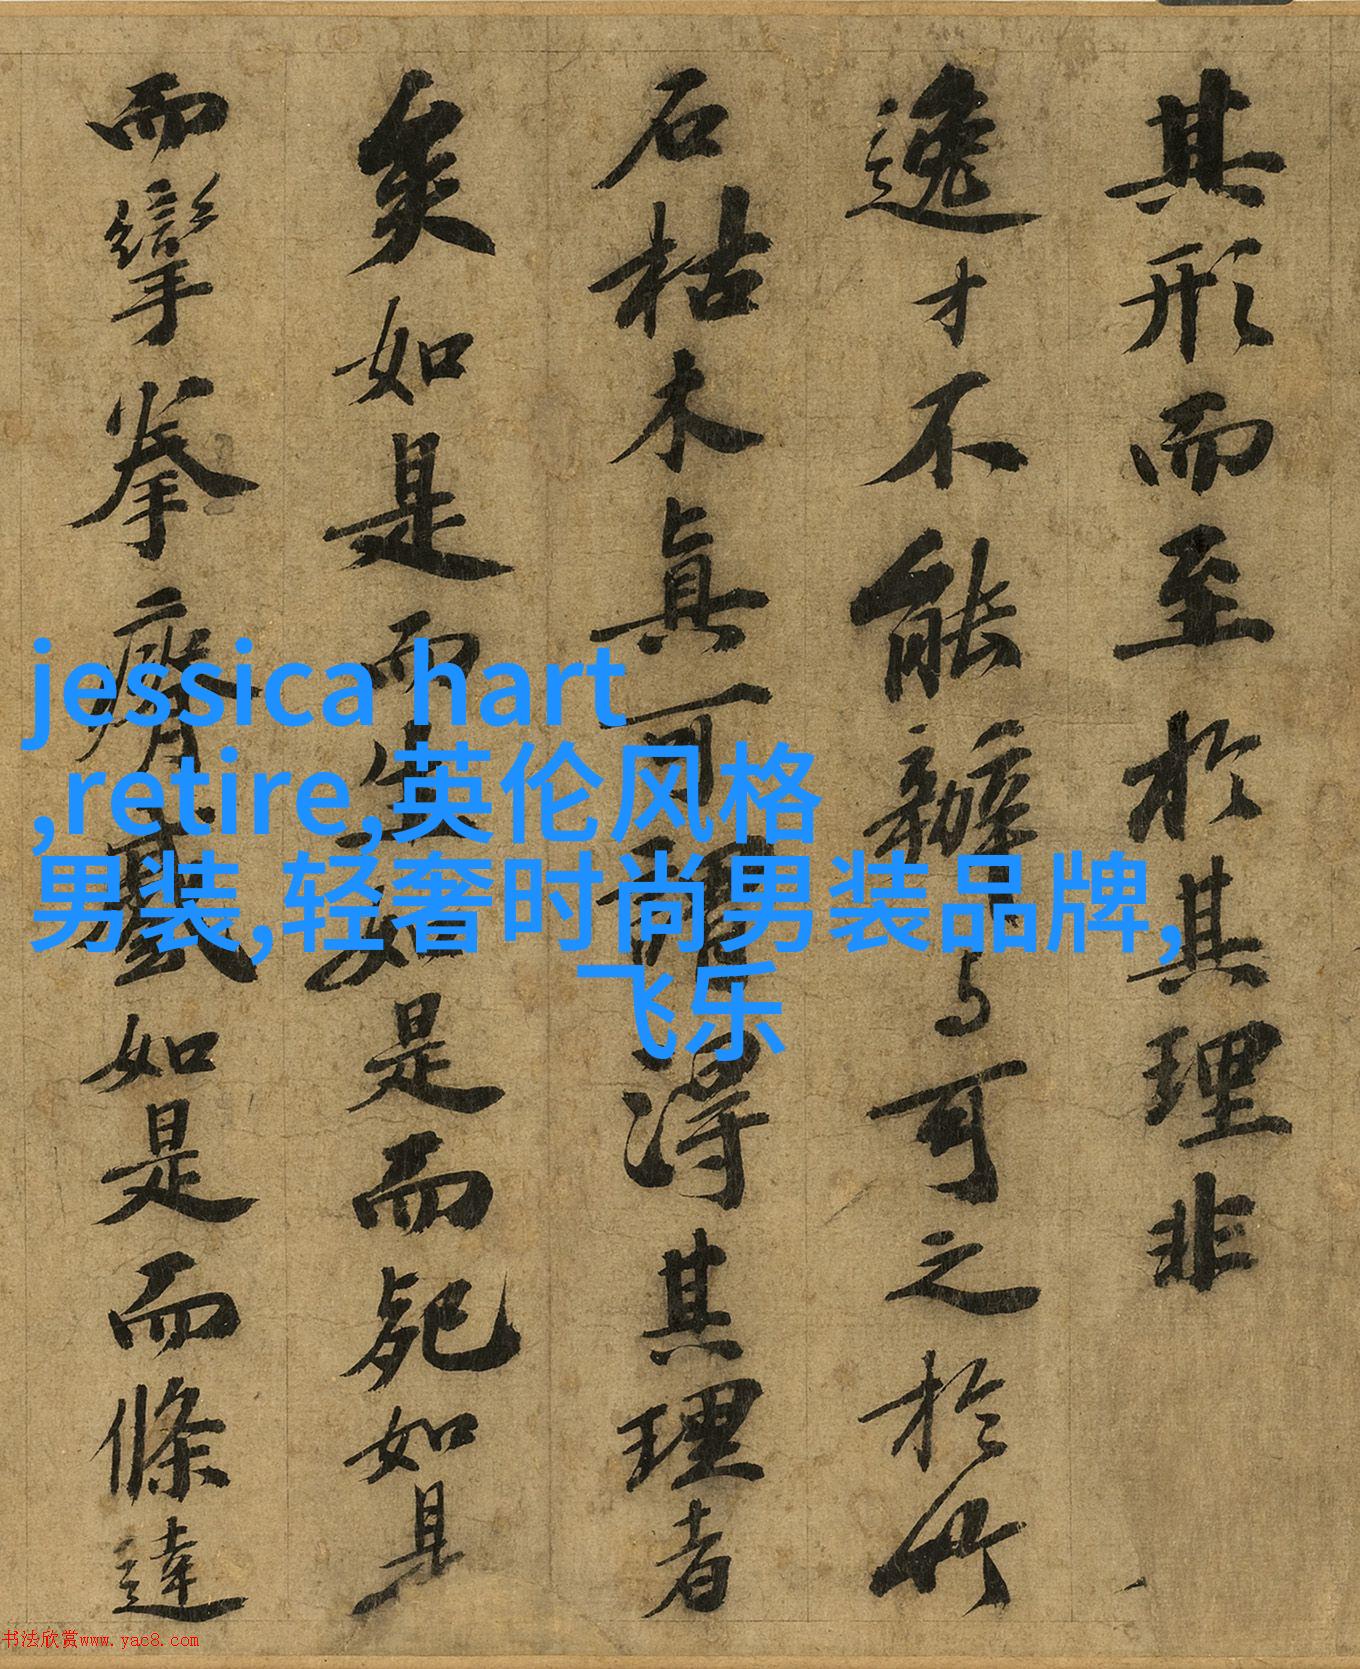 其形而至於其理非
逸才不能辦与可之於竹
石枯木真可謂得其理者
矣如是而生如是而死如是
而攣拳瘠蹙如是而條達
jessica hart
,retire,英伦风格
男装,轻奢时尚男装品牌,
飞乐
书法欣赏www.yac8.com